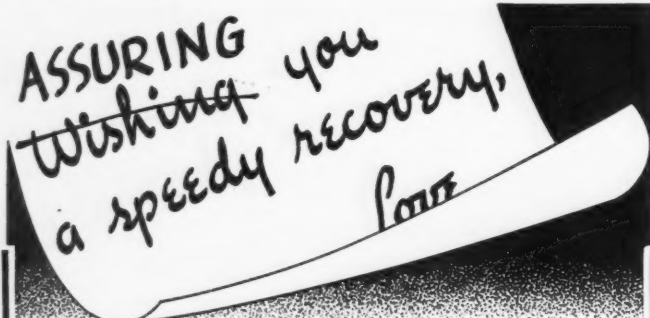 ASSURING
Wishing you
a speedy recovery,
Love